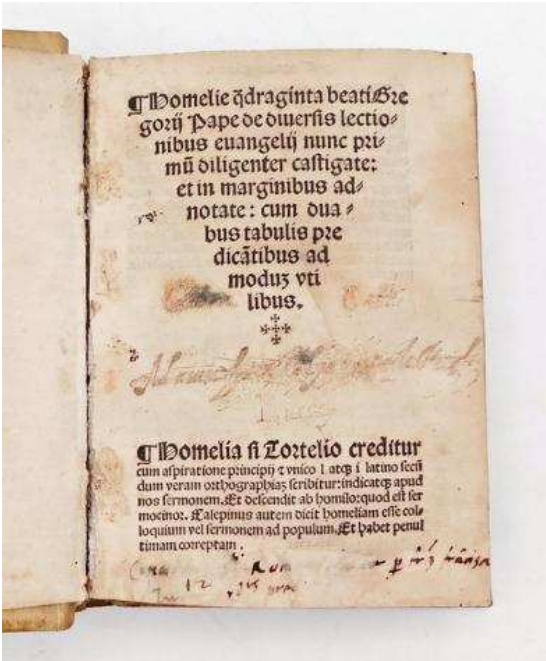 ¶Homelie q̄draginta beati Gre
gorij Pape de diuersis lectio⸗
nibus euangelij nunc pri⸗
mū diligenter castigate:
et in marginibus ad⸗
notate: cum dua⸗
bus tabulis pre
dicātibus ad
moduꝫ vti
libus.
¶Homelia si Tortelio creditur
cum aspiratione principij ⁊ vnico l atqꝫ i latino secū
dum veram orthographiaꝫ scribitur: indicatqꝫ apud
nos sermonem. Et descendit ab homilor quod est ser
mocinor. Calepinus autem dicit homeliam esse col⸗
loquium vel sermonem ad populum. Et habet penul
timam correptam.
12